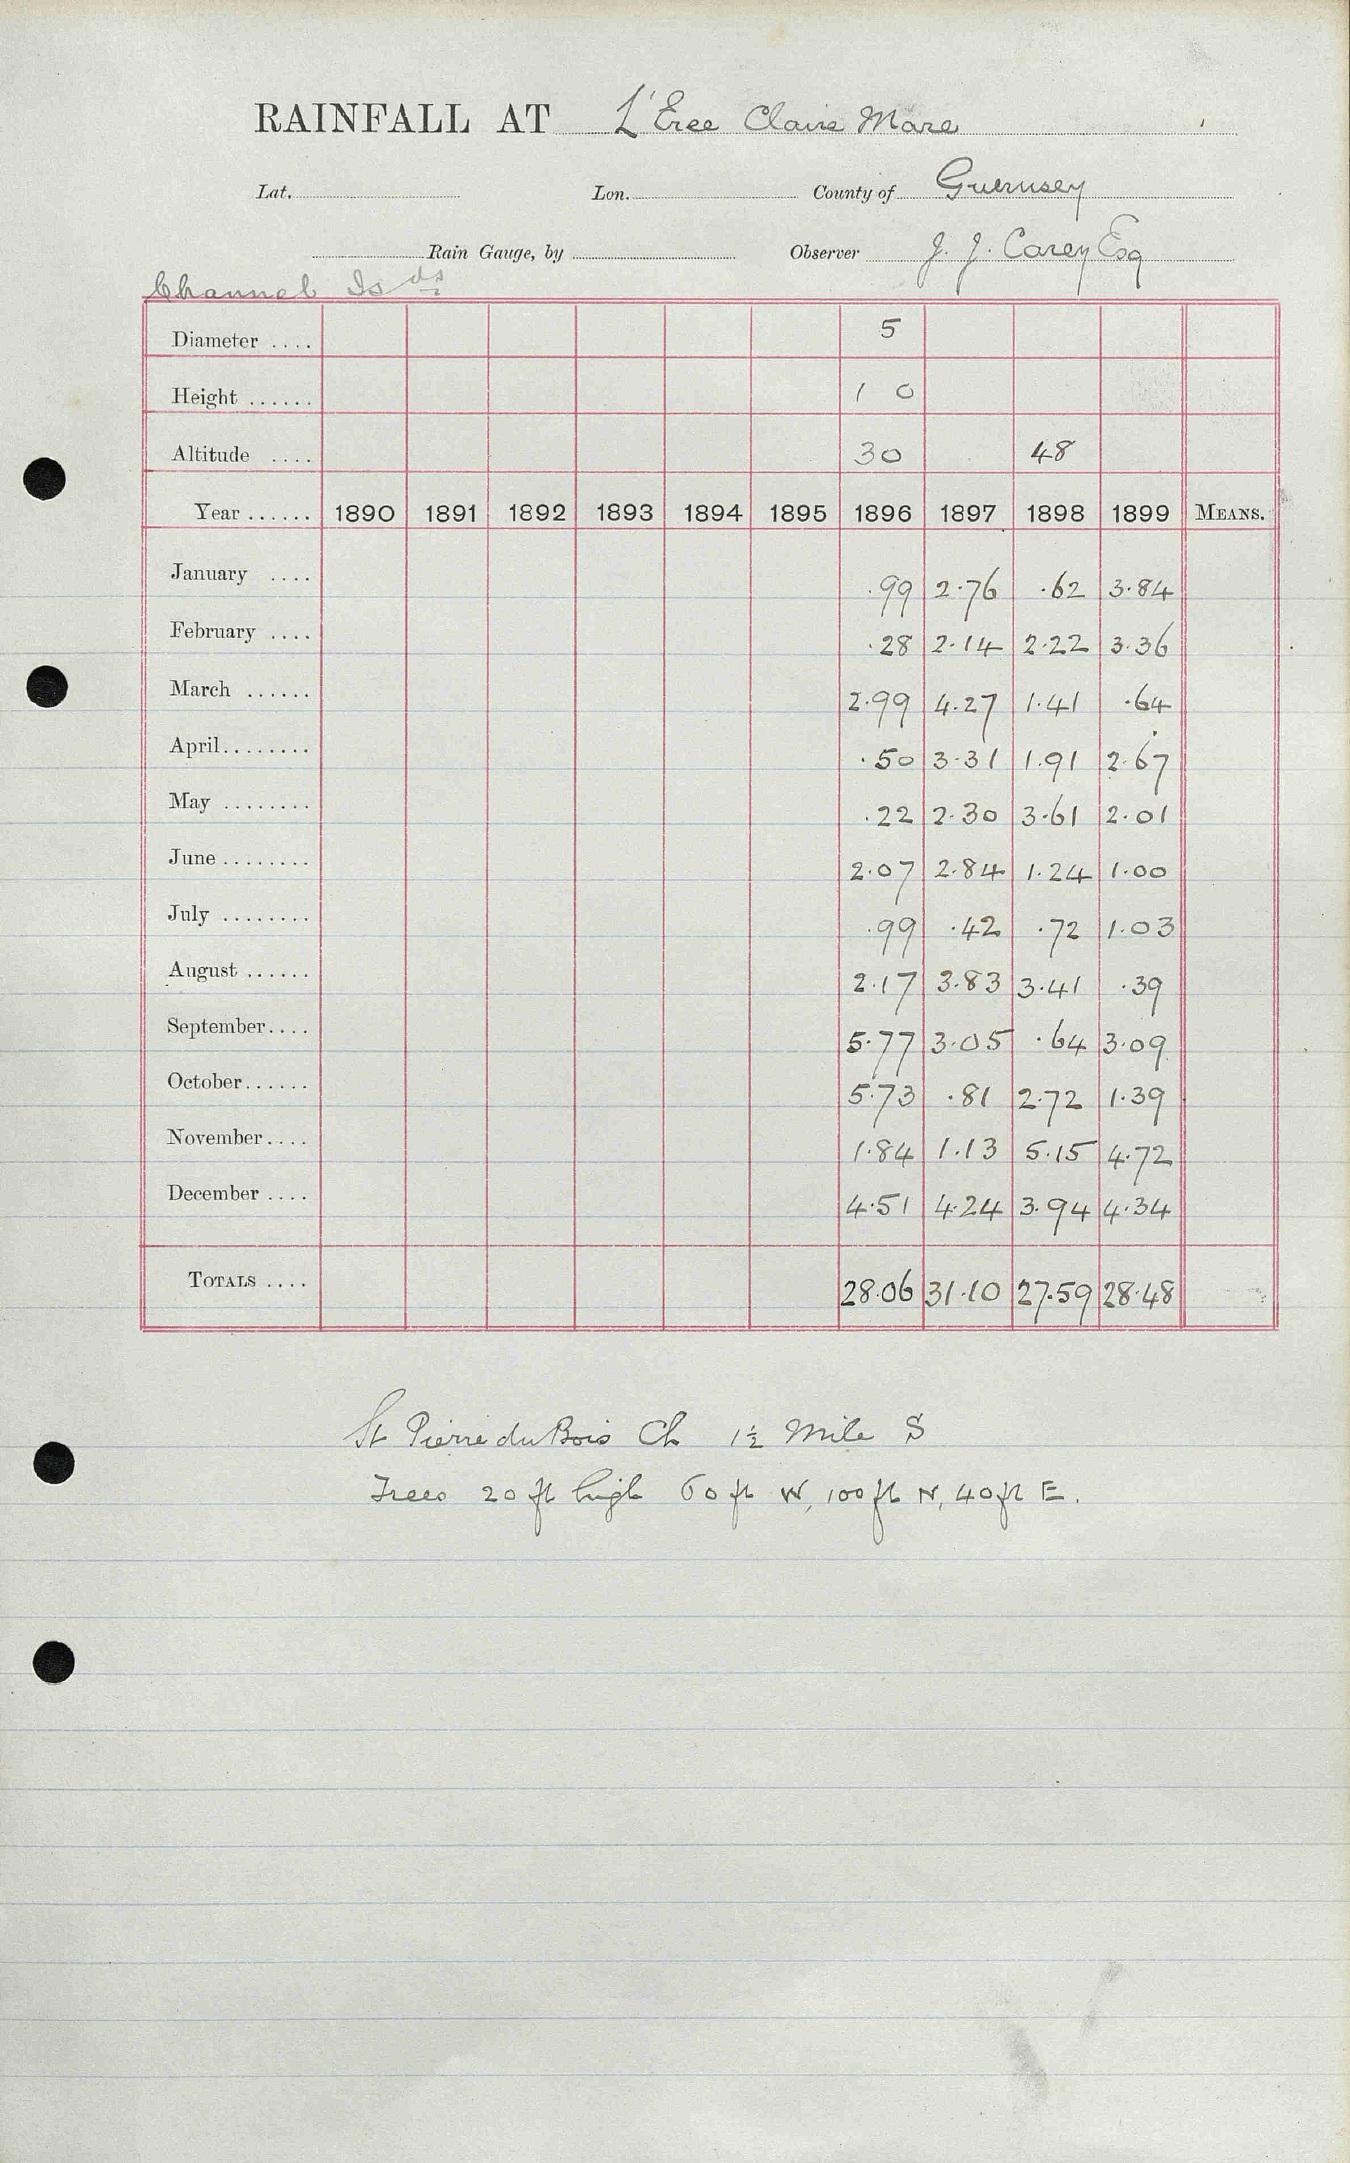 RAINFALL AT L'Eree Claire Mare
Lat. Lon. County of Guernsey
Rain Gauge, by Observer J. J. Carey Esq
Channel Is ds
Diameter .... 5
Height ...... 1 0
Altitude .... 30 48
Year ...... 1890 1891 1892 1893 1894 1895 1896 1897 1898 1899 MEANS.
January .... .99 2.76 .62 3.84
February .... .28 2.14 2.22 3.36
March ...... 2.99 4.27 1.41 .64
April ........ .50 3.31 1.91 2.67
May ........ .22 2.30 3.61 2.01
June ........ 2.07 2.84 1.24 1.00
July ........ .99 .42 .72 1.03
August ...... 2.17 3.83 3.41 .39
September .... 5.77 3.05 .64 3.09
October ...... 5.73 .81 2.72 1.39
November .... 1.84 1.13 5.15 4.72
December .... 4.51 4.24 3.94 4.34
TOTALS .... 28.06 31.10 27.59 28.48
St Pierre du Bois Ch 1½ Mile S
Trees 20 ft high 60 ft W, 100 ft N, 40 ft E.